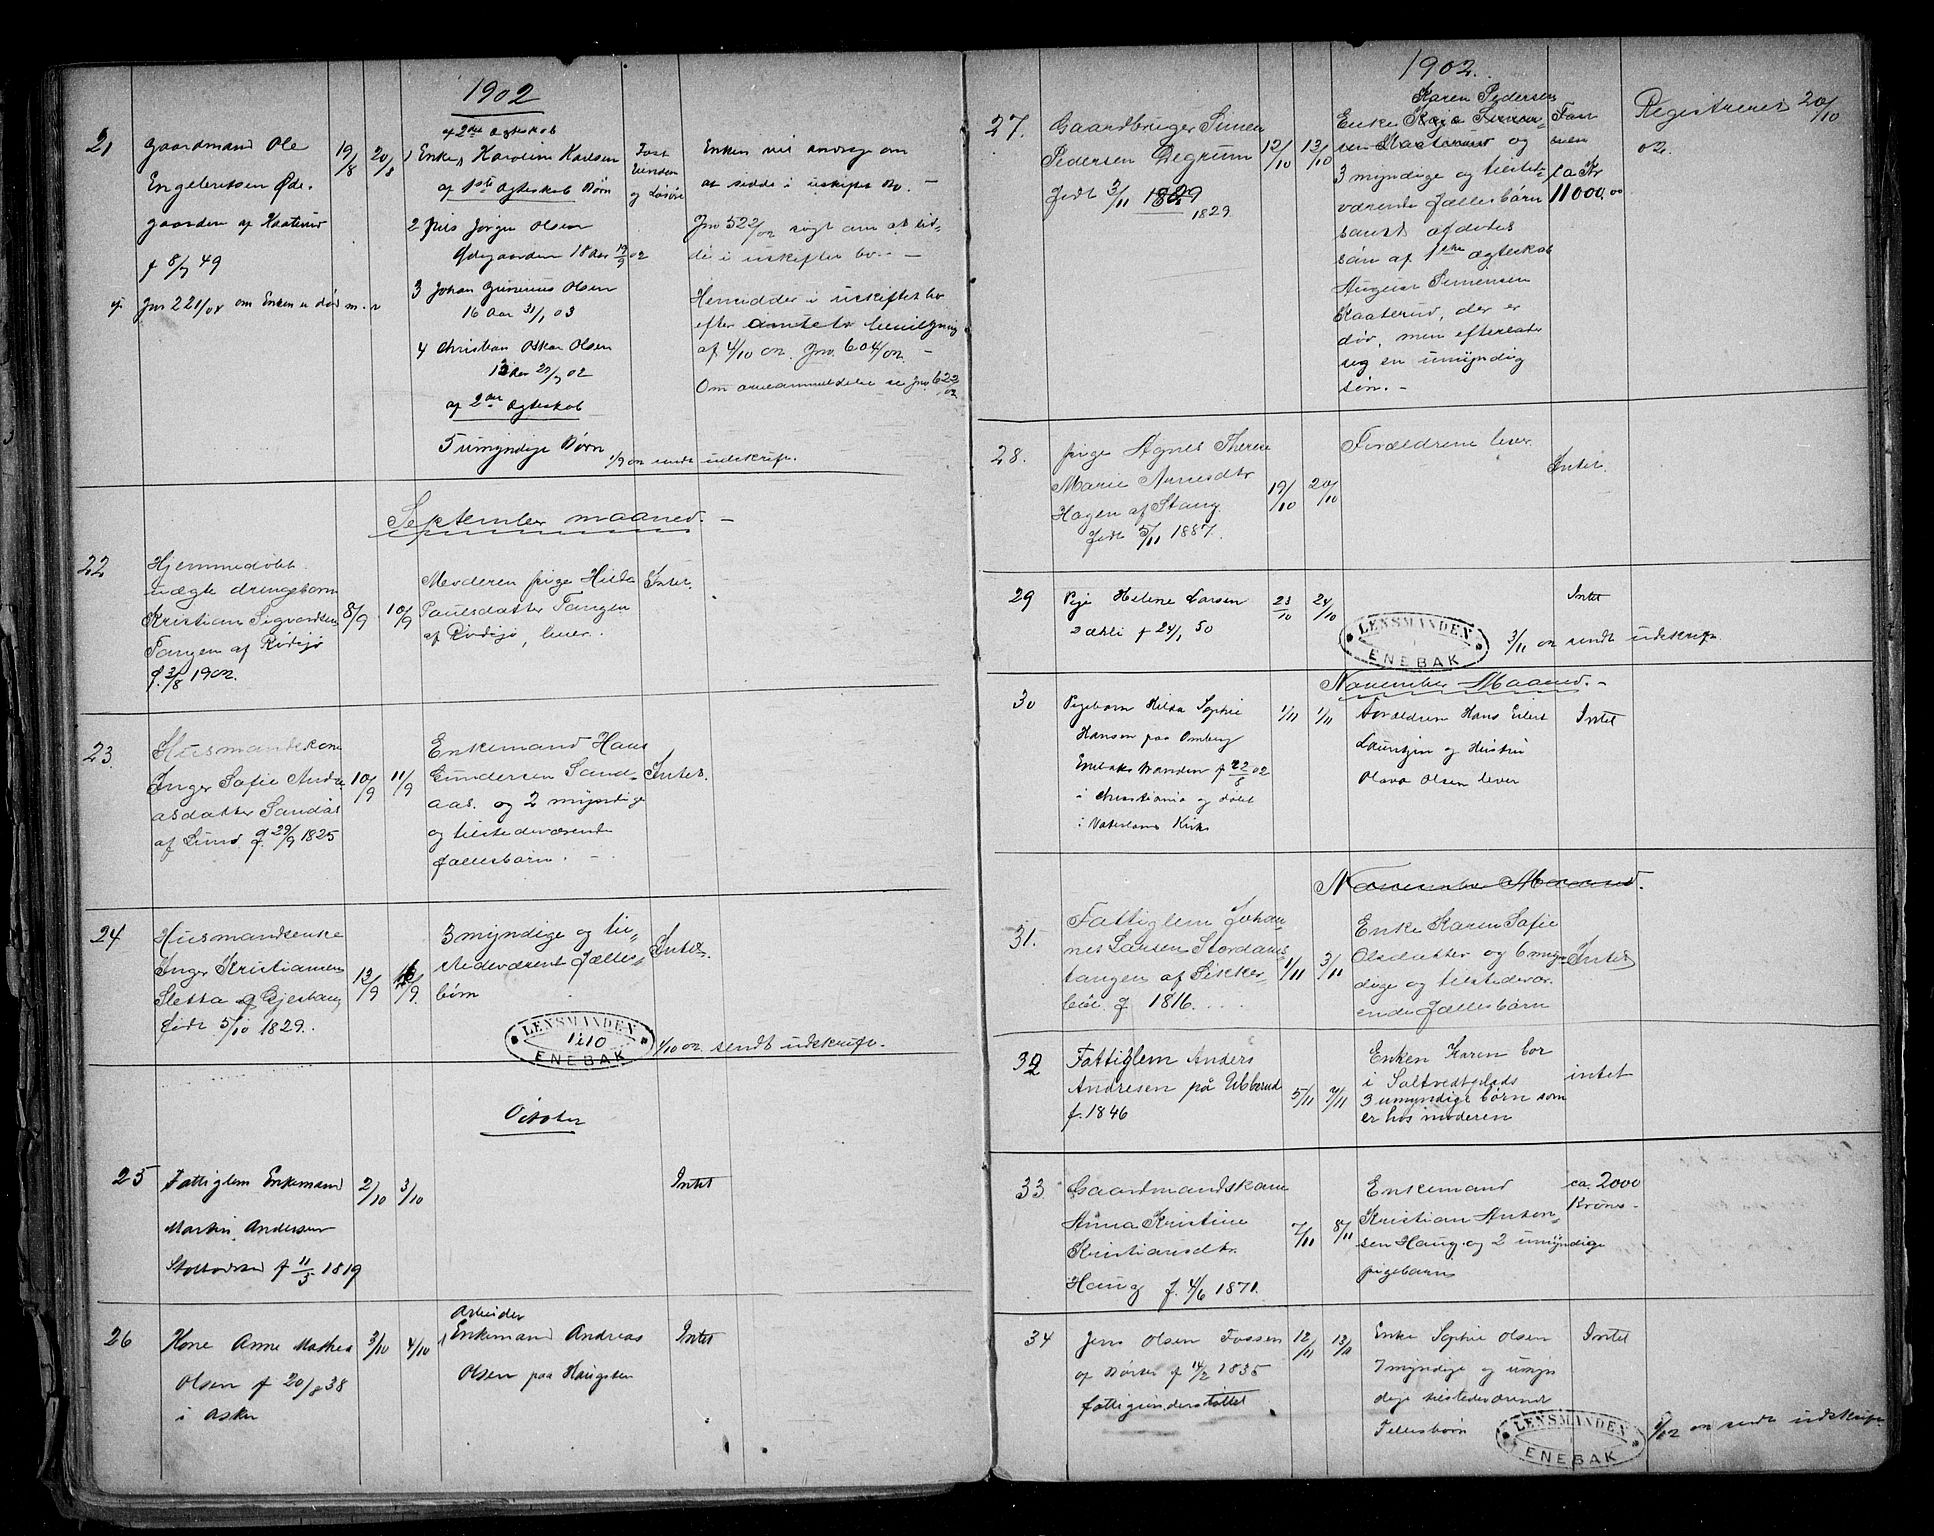 1902
21
Gaardmand Ole
Engebretsen Øde-
gaarden af Kaaterud
f 8/7 49
cfr. Jno 221/08 om Enken er død m. v
19/8
20/8
af 2den Ægteskab
1 Enken Karoline Karlsen
af 1ste Ægteskab Børn
2 Nils Jørgen Olsen
Ødegaarden 18 Aar 19/9 02
3 Johan Gunerius Olsen
16 Aar 31/1 03
4 Christian Oskar Olsen
13 Aar 27/7 02
af 2det Ægteskab
5 umyndige Børn
Fast
Eiendom
og Løsøre
Enken vil andrage om
at sidde i uskiftet Bo. –
Jno 522/02 søgt om at sid-
de i uskiftet bo. –
Hensidder i uskiftet bo
efter amtets bevilgning
af 4/10 02. Jno. 604/02. –
Om arveanmeldelse se Jno 622/02
1/9 02 sendt udskrift.
September maaned. –
22
Hjemmedøbt
uægte drengebarn
Kristian Sigvardsen
Tangen af Rødsjø
f. 3/8 1902.
8/9
10/9
Moderen pige Hilda
Paulsdatter Tangen
af Rødsjø, lever.
Intet.
23.
Husmandskone
Inger Sofie Andre-
asdatter Sandaas
af Lund f. 29/9 1825
10/9
11/9
Enkemand Hans
Gundersen Sand-
aas. og 2 myndige
og tilstedeværende
fællesbarn. –
Intet.
24
Husmandsenke
Inger Kristiansen
Sletta af Gjestang
født 5/10 1829.
12/9
16/9.
3 myndige og til-
stedeværent fælles-
børn
Intet.
LENSMANDEN
1/10
ENEBAK
1/10 02. sendt udskrift.
October
25
Fattiglem Enkemand
Martin Andersen
f 11/5 1819
2/10
3/10
Intet
26
Kone Anne Mathea
Olsen f 20/8 38
i Asker
3/10
4/10
Arbeider
Enkemand Andreas
Olsen paa Haugsten
Intet
1902.
27.
Gaardbruger Simen
Pedersen Degrum
født 3/11 1829
1829
12/10
13/10
Karen Pedersen
Enke Kaja Simen-
sen Kaaterud og
3 myndige og tilsted-
værende fællesbørn
samt afdødes
søn af 1ste ægteskab
August Simensen
Kaaterud, der er
død, men efterlader
sig en umyndig
søn. –
ca Kr
11000.00
Registreret 20/10
02.
28.
pige Agnes Therese
Marie Arnesdtr
Hagen af Stang.
født 5/11 1887.
19/10
20/10
Forældrene lever.
Intet.
29
Pige Helene Larsen
Dæhli f 24/1 50
23/10
24/10
Intet
LENSMANDEN
ENEBAK
3/11 02 sendt udskrift.
November Maaned. –
30
Pigebarn Hilda Sophie
Hansen paa Omberg
Enebak f 22/8 02
i Christiania og døbt
i Vaterlands Kirke
1/11
1/11
Forældrene Hans Eilert
Lauritzen og Hustru
Olava Olsen lever
Intet
November Maaned.
31.
Fattiglem Johan-
nes Larsen Stordams-
tangen af Sikker-
bøl f 1816.
1/11
3/11
Enke Karen Sofie
Olsdatter og 6 myn-
dige og tilstedevær-
ende fællesbørn
Intet
32
Fattiglem Anders
Andresen på Ubberud
f. 1846
5/11
7/11
Enken Karen bor
i Saltvedtplads
3 umyndige børn som
er hos moderen
intet
33
Gaardmandskone
Anna Kristine
Kristiansdtr.
Haug f. 4/6 1871.
7/11
8/11
Enkemand
Kristian Anton-
sen Haug. og 2 umyndige
pigebarn
ca. 2000
Kroner.
34
Jens Olsen Fossen
af Børter f 14/2 1835
fattigunderstøttet
12/11
13/11
Enke Sophie Olsen
7 myndige og umyn
dige tilstedeværende
Fellesbørn
Intet
LENSMANDEN
ENEBAK
1/12 02 sendt udskrift